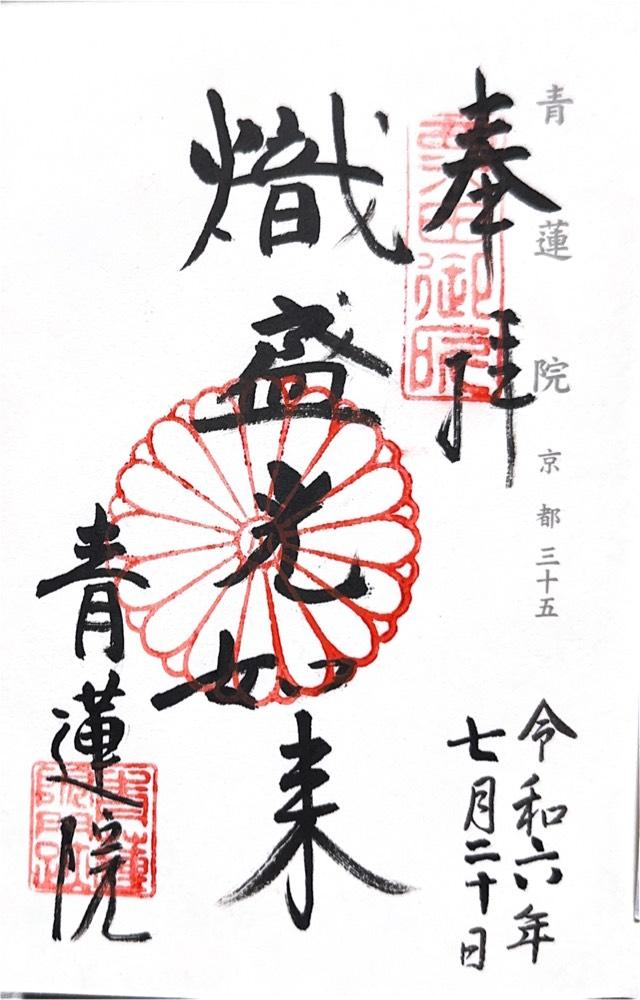 青蓮院 京都三十五
奉拝
令和六年
七月二十日
熾盛光如来
青蓮院